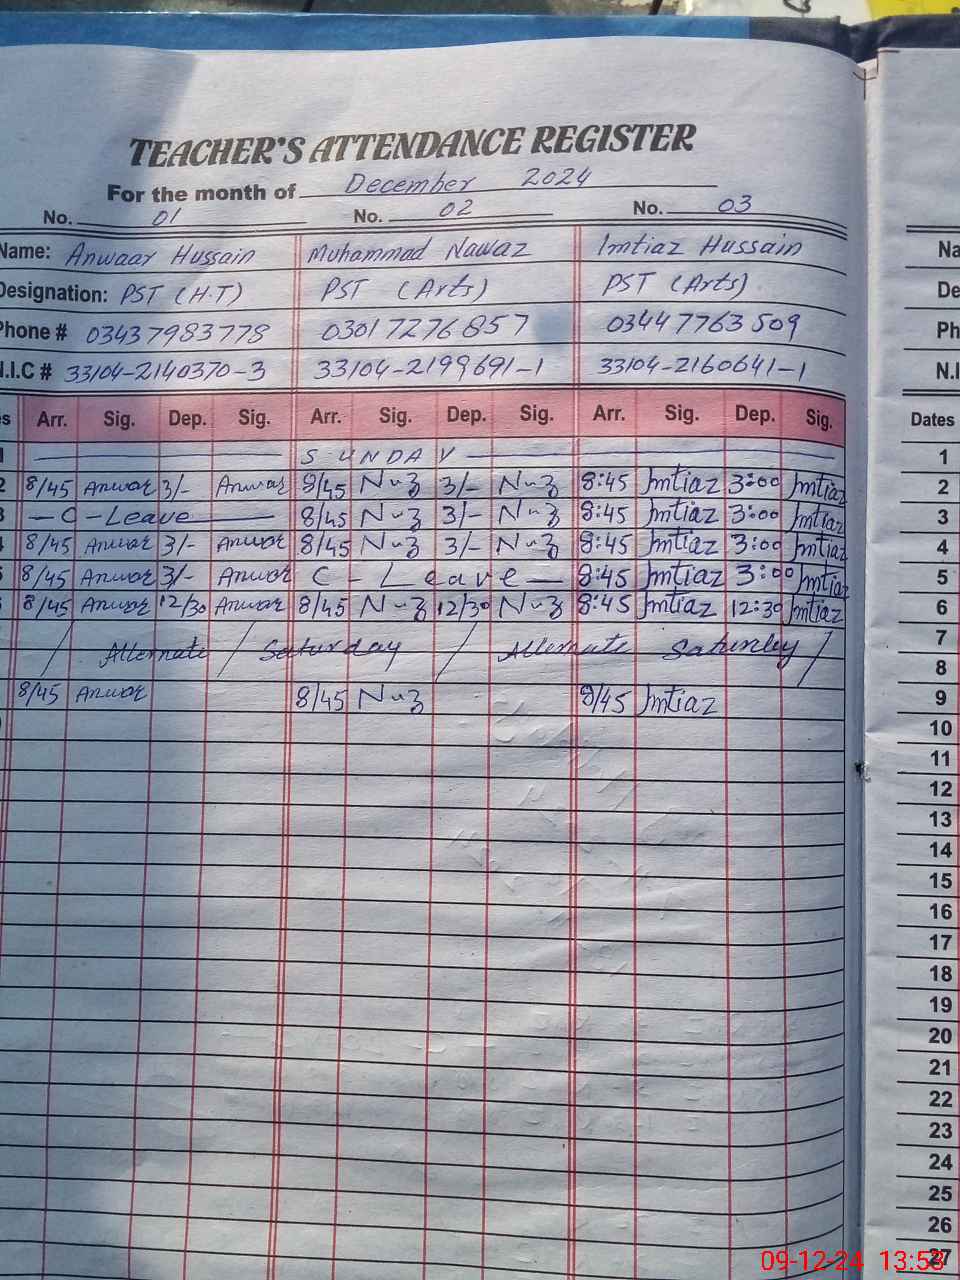 TEACHER'S ATTENDANCE REGISTER
For the month of December 2024
No. 01 No. 02 No. 03
Name: Anwaar Hussain Muhammad Nawaz Imtiaz Hussain Na
Designation: PST (H.T) PST (Arts) PST (Arts) De
Phone # 03437983778 03017276857 03447763509 Ph
N.I.C # 33104-2140370-3 33104-2199691-1 33104-2160641-1 N.I
es Arr. Sig. Dep. Sig. Arr. Sig. Dep. Sig. Arr. Sig. Dep. Sig. Dates
1 SUNDAY 1
2 8/45 Anwar 3/- Anwar 8/45 Naz 3/- Naz 8:45 Imtiaz 3:00 Imtiaz 2
3 - C - Leave 8/45 Naz 3/- Naz 8:45 Imtiaz 3:00 Imtiaz 3
4 8/45 Anwar 3/- Anwar 8/45 Naz 3/- Naz 8:45 Imtiaz 3:00 Imtiaz 4
5 8/45 Anwar 3/- Anwar C - Leave 8:45 Imtiaz 3:00 Imtiaz 5
8/45 Anwar 12/30 Anwar 8/45 Naz 12/30 Naz 8:45 Imtiaz 12:30 Imtiaz 6
7
/ Alternate / Saturday / Alternate Saturday /
8
8/45 Anwar 8/45 Naz 8/45 Imtiaz 9
10
11
12
13
14
15
16
17
18
19
20
21
22
23
24
25
26
27
09-12-24 13:53